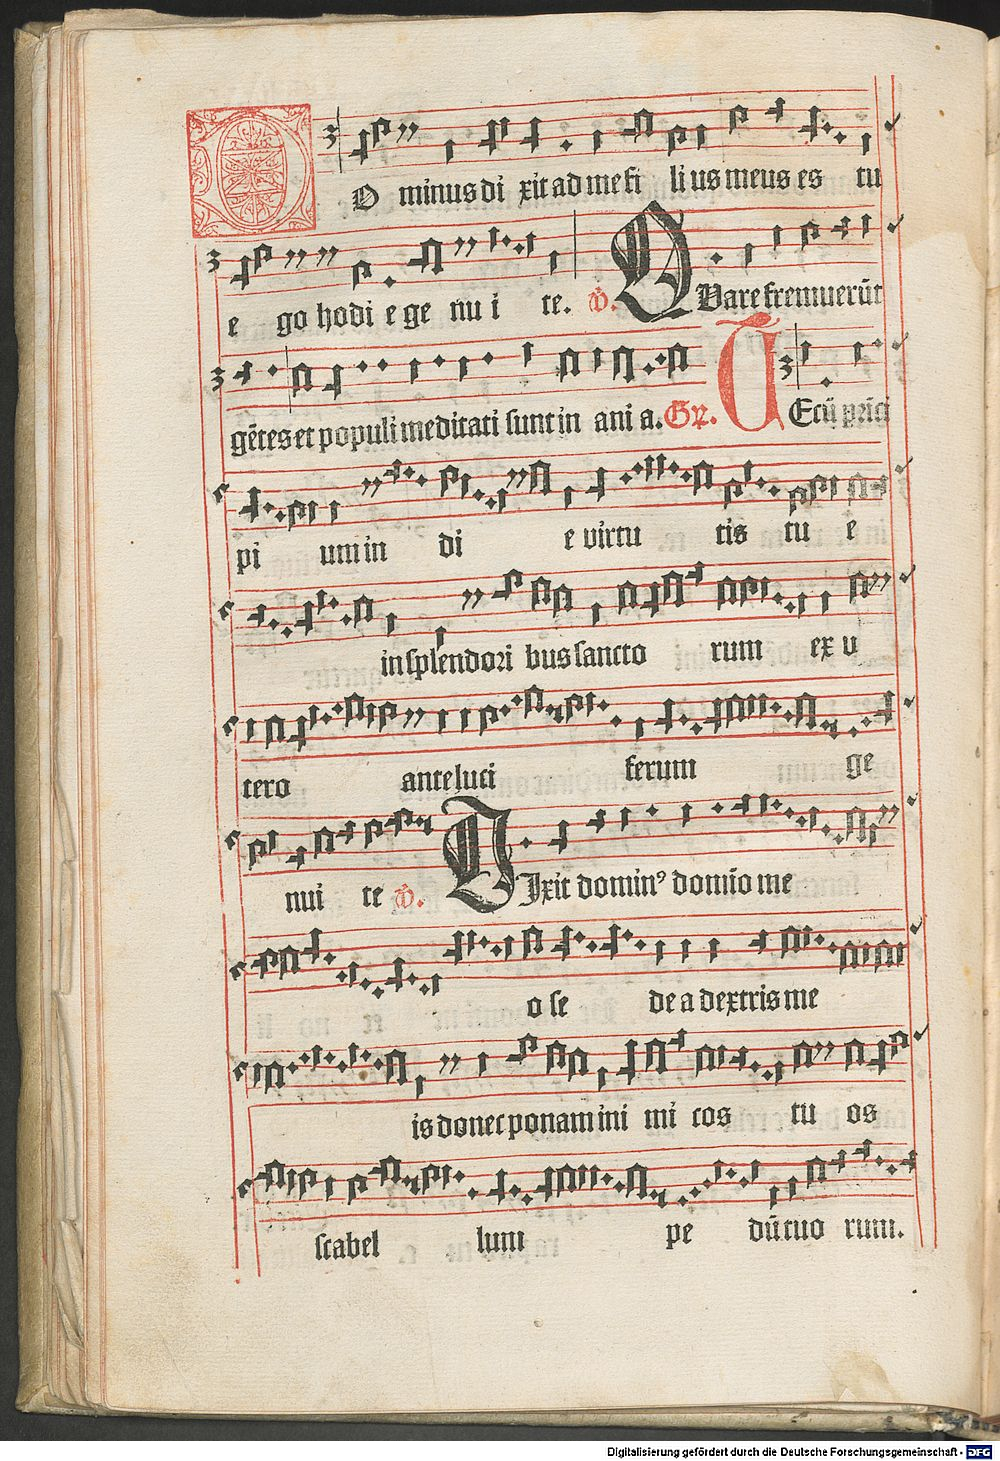 D O minus di xit ad me fi li us meus es tu
e go hodi e ge nu i te. V. QVare fremuerūt
gētes et populi meditati sunt in ani a. Gr. TEcū prīci
pi um in di e virtu tis tu e
in splendori bus sancto rum ex v
tero ante luci ferum ge
nui te V. DIxit dominꝰ domīo me
o se de a dextris me
is donec ponam ini mi cos tu os
scabel lum pe dū tuo rum.
Digitalisierung gefördert durch die Deutsche Forschungsgemeinschaft - DFG